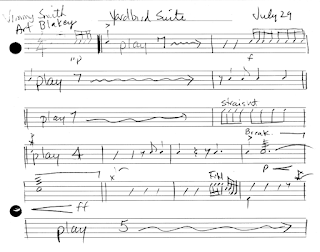 Jimmy Smith Yardbird Suite July 29
Art Blakey
play 7
f
play 7
play 7 straight
play 4 Break
p
Fill
ff f
play 5